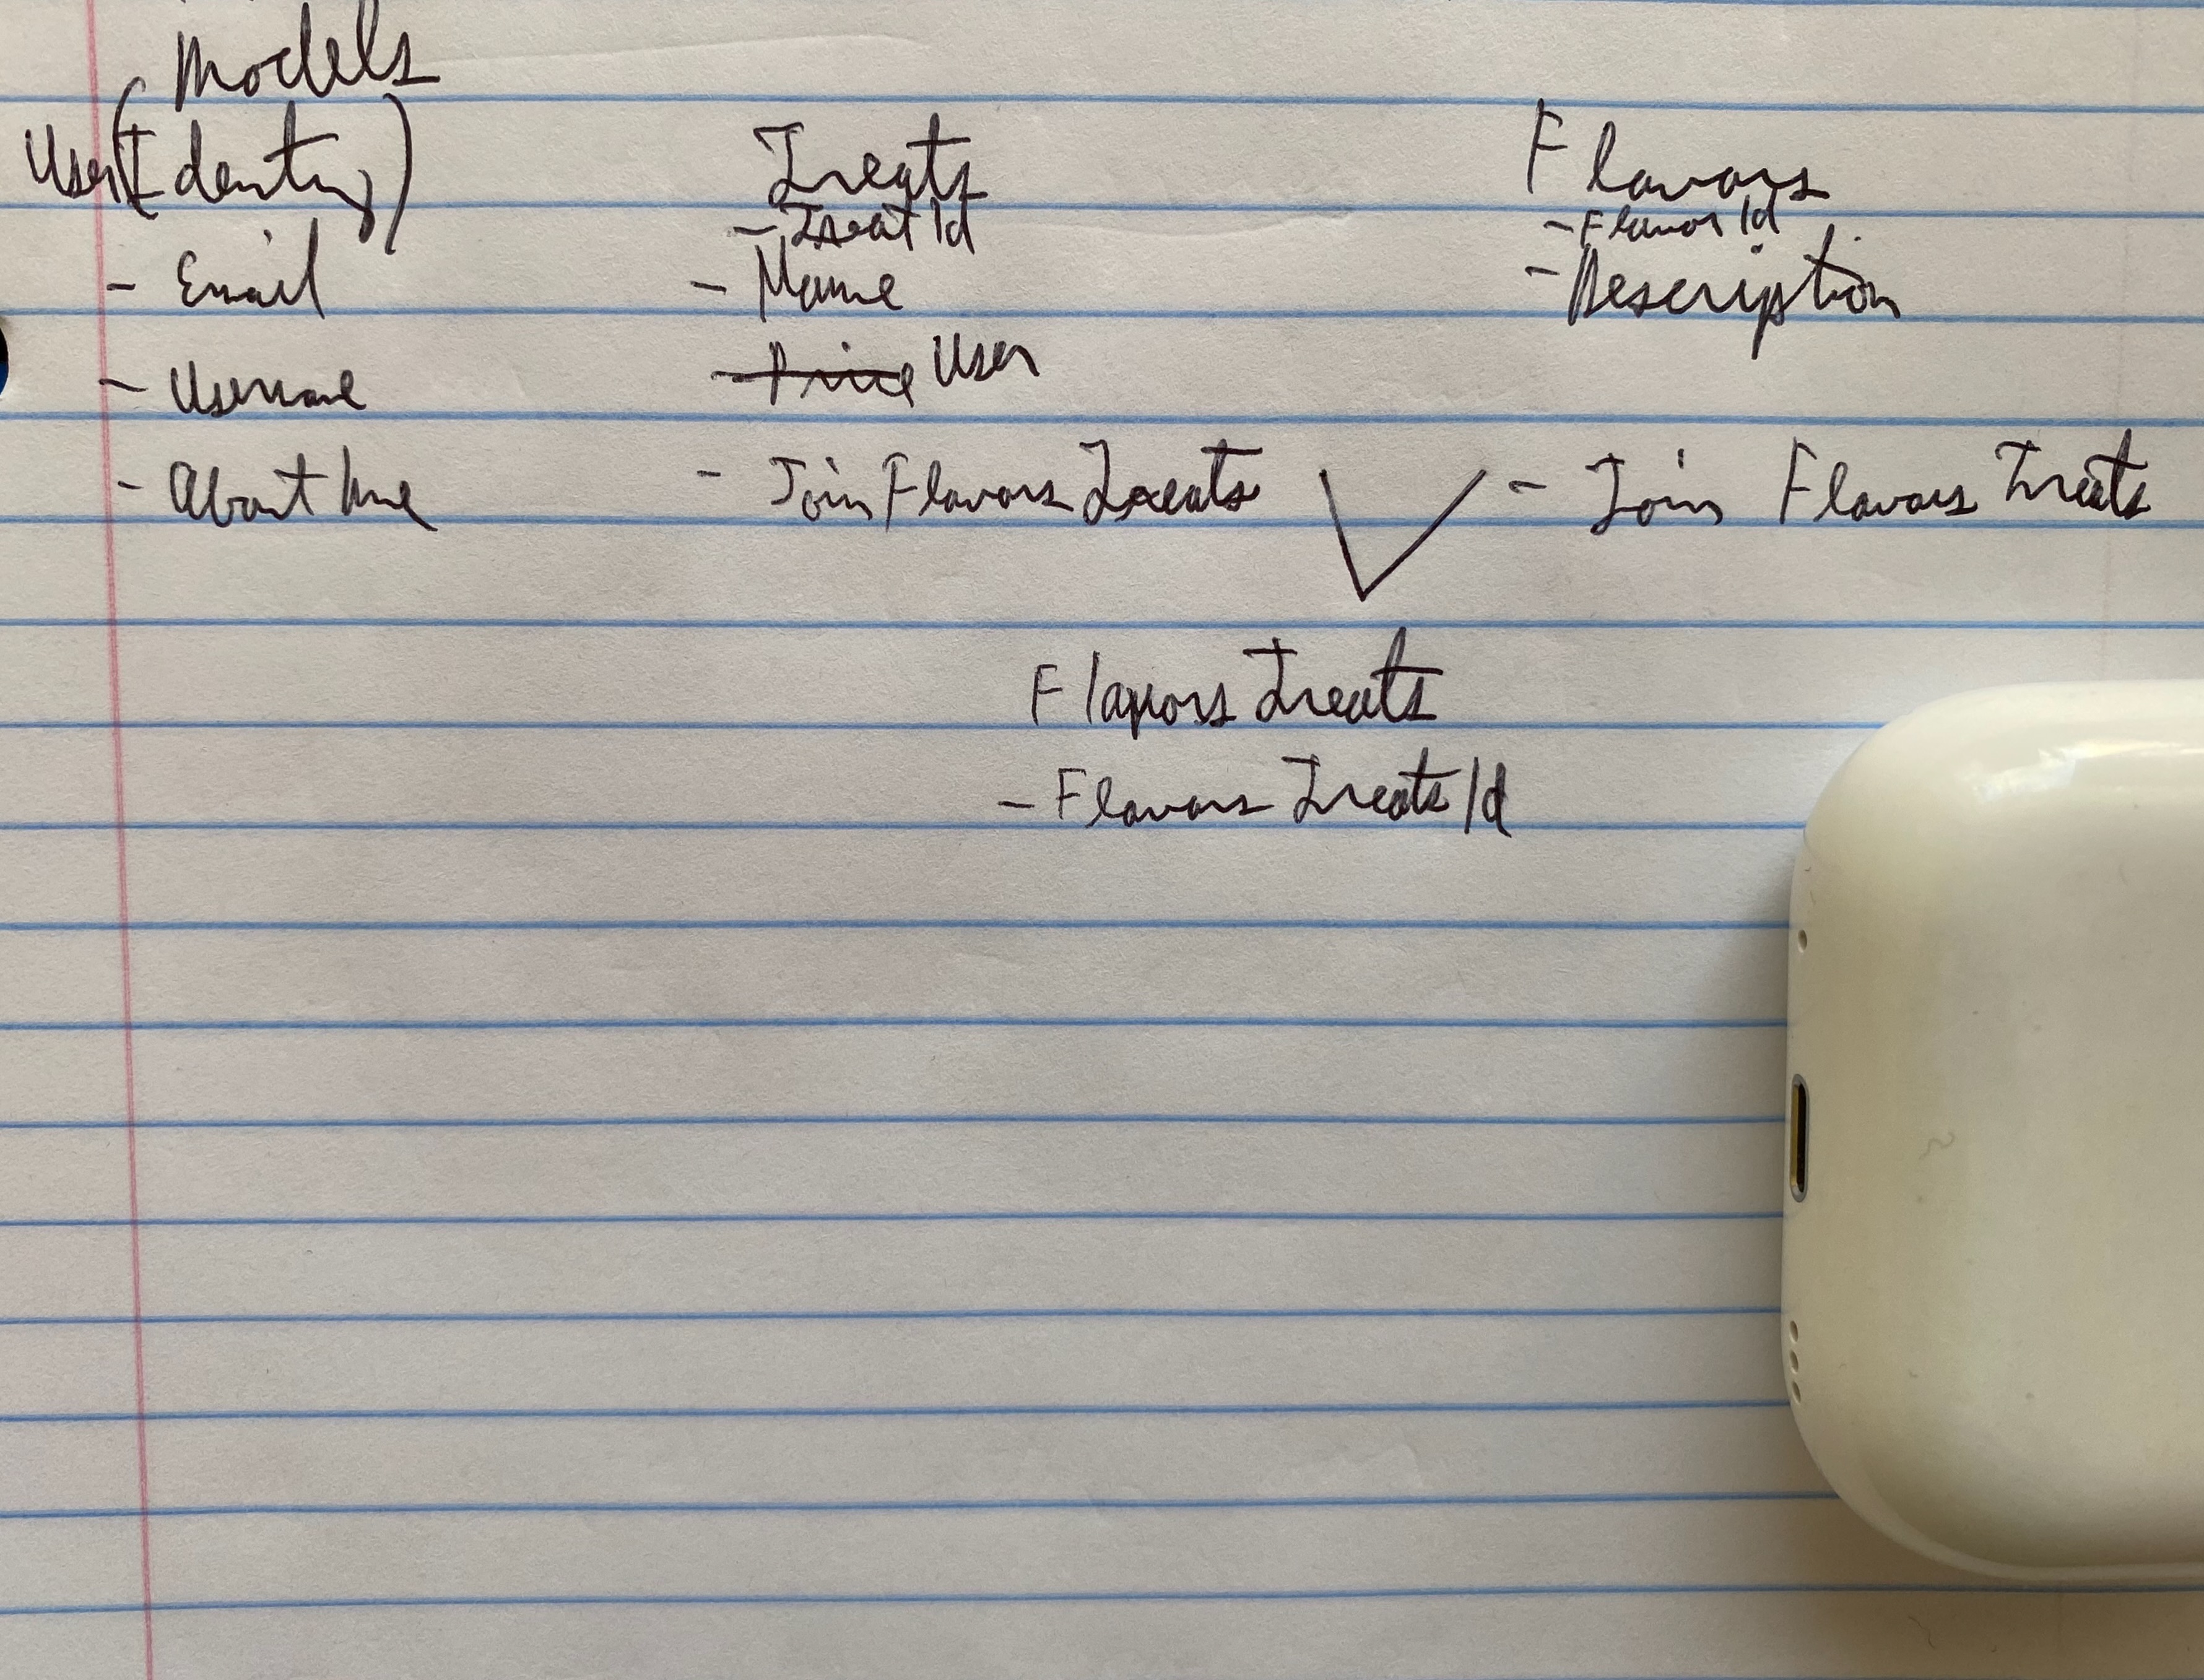 Models
User (Identity)
- Email
- Username
- About Me
Treats
- TreatId
- Name
- Price User
- Join Flavors Treats
Flavors
- FlavorId
- Description
- Join Flavors Treats
Flavors Treats
- Flavors Treats Id